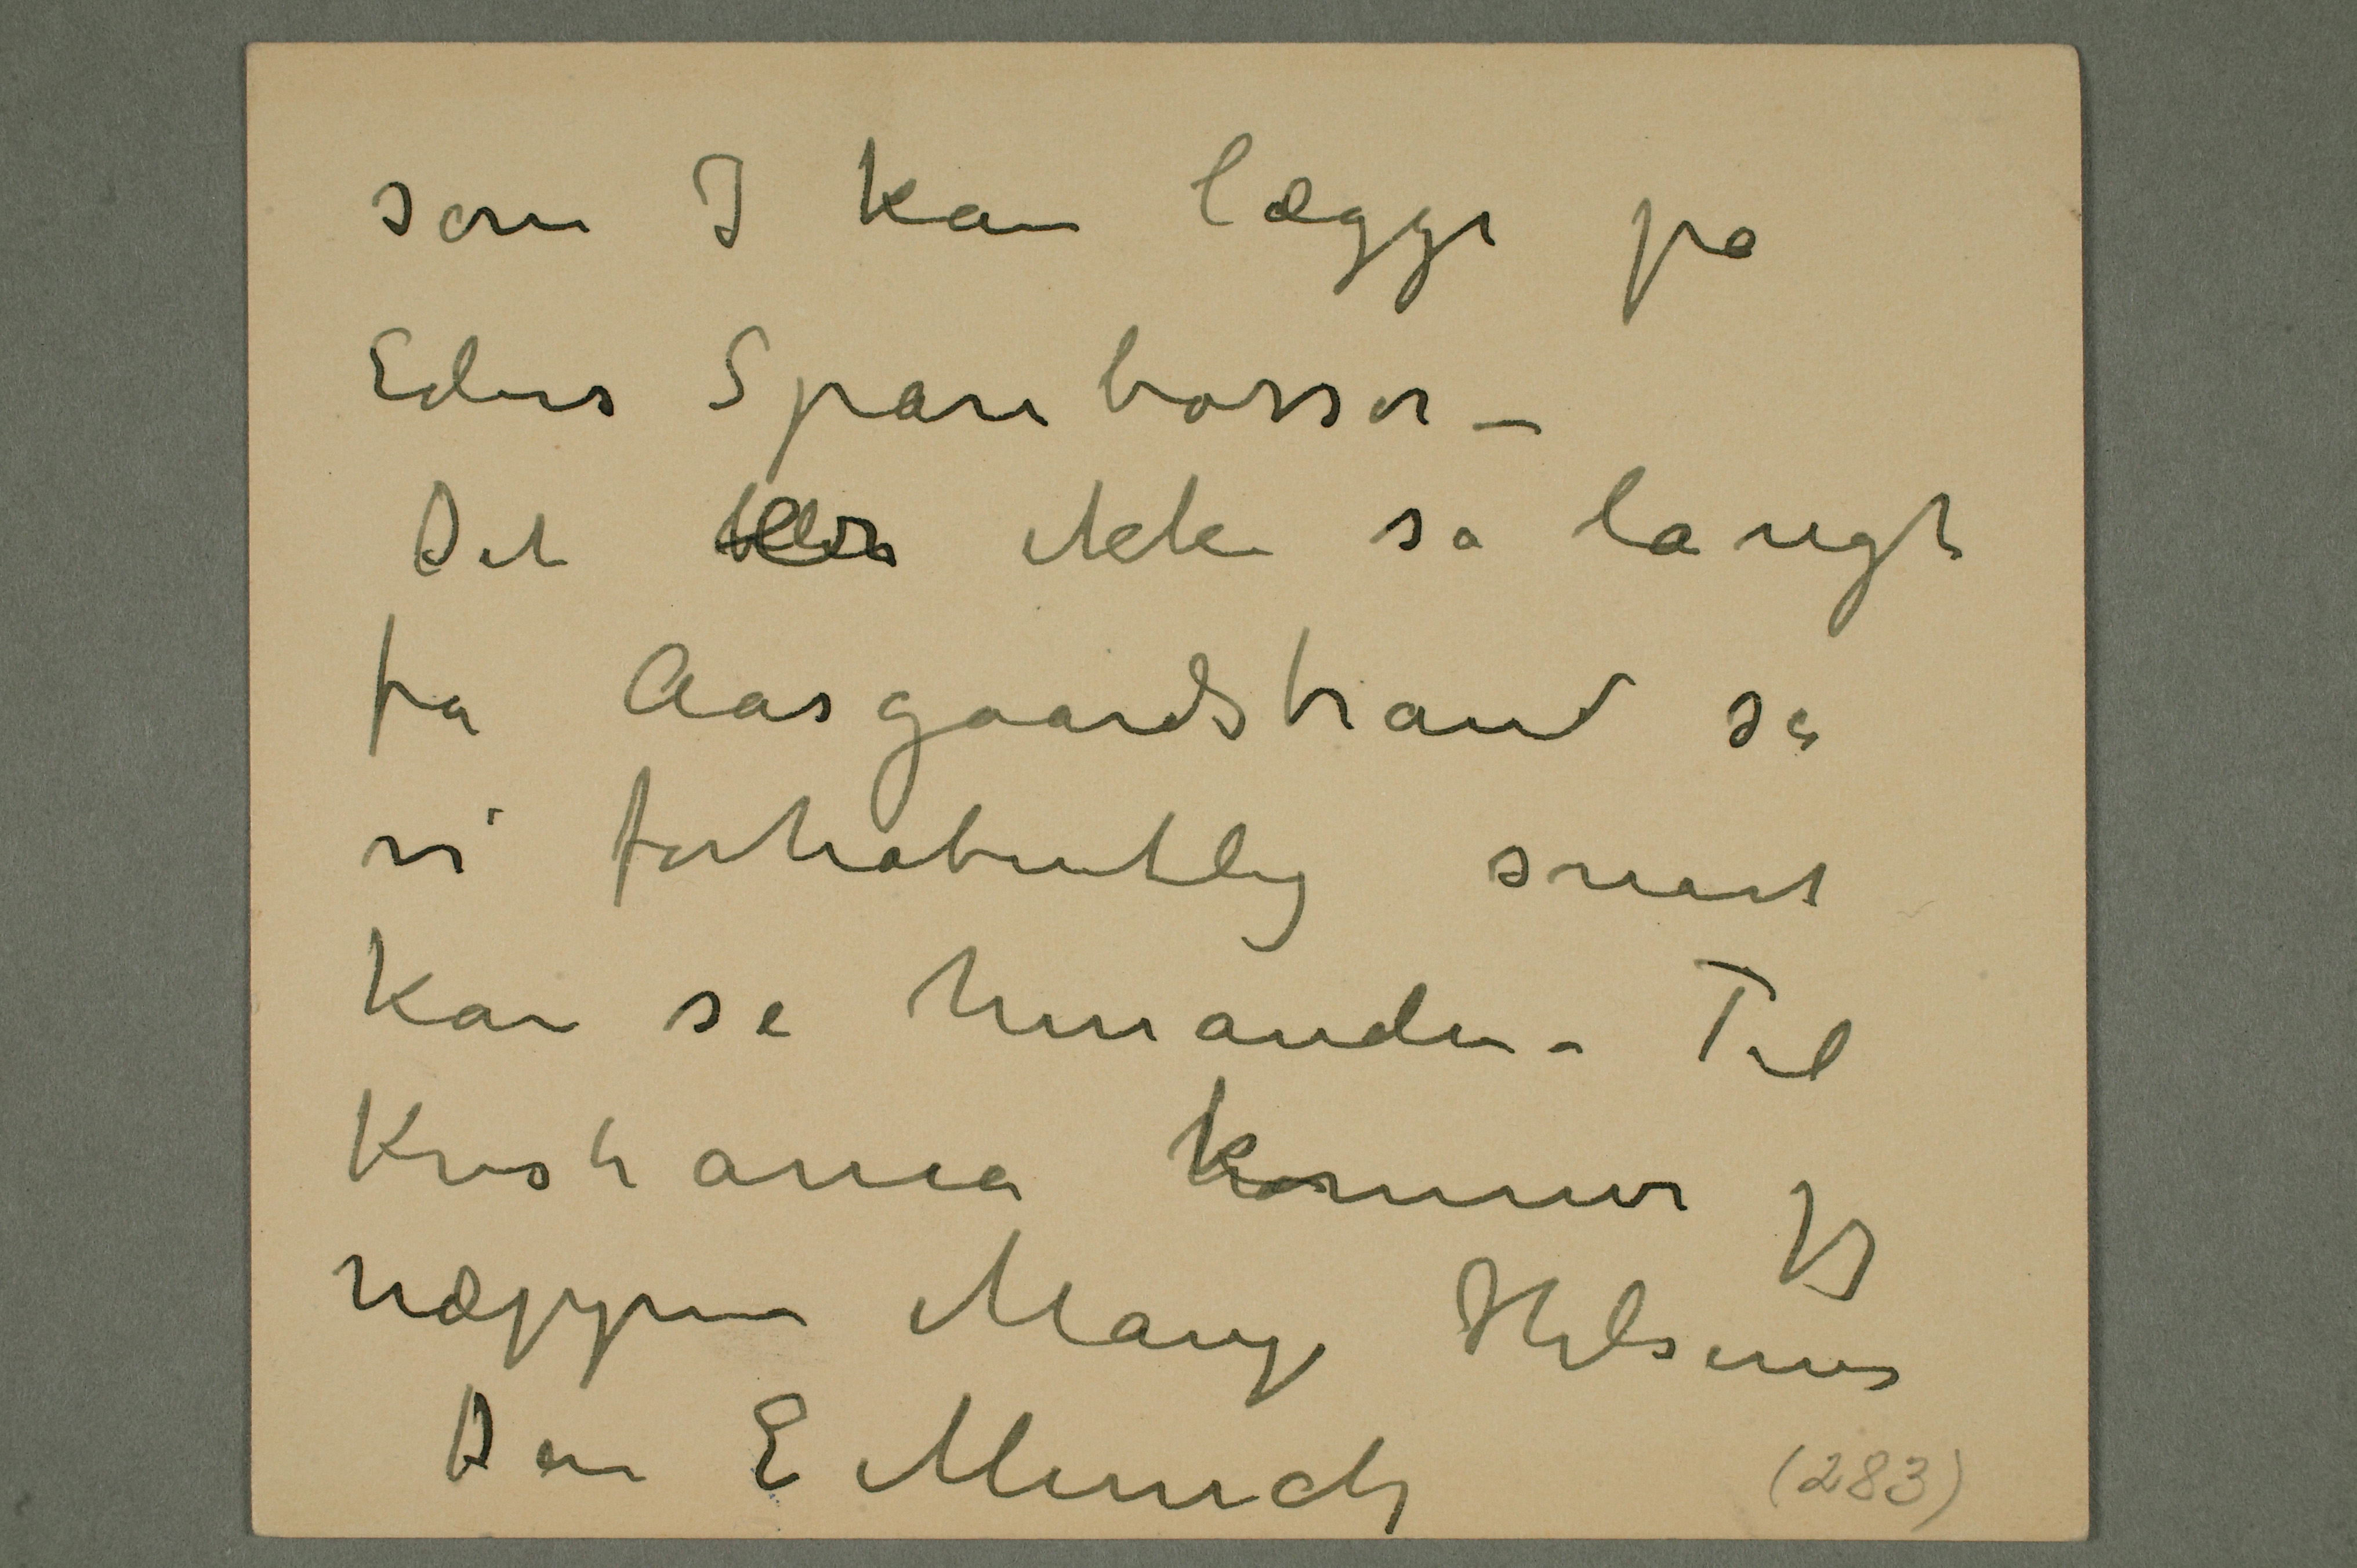 som I kan lægge på
Eders Sparebørser –
Det blir ikke så langt
fra Aasgaardstrand så
vi forhåbentlig snart
kan se hinanden – Til
Kristiania kommer jeg
næppe Mange Hilsener
Din E Munch
(283)